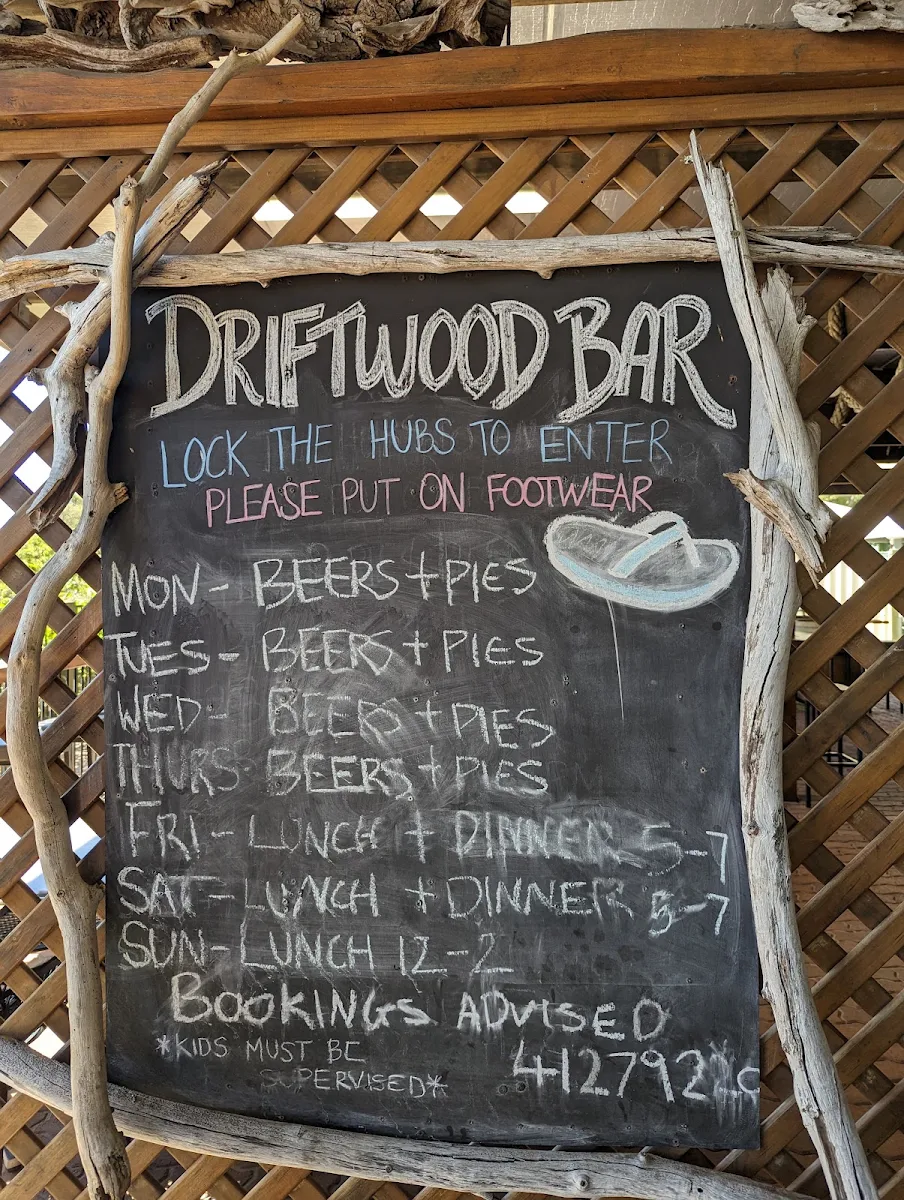 DRIFTWOOD BAR
LOCK THE HUBS TO ENTER
PLEASE PUT ON FOOTWEAR
MON - BEERS + PIES
TUES - BEERS + PIES
WED - BEERS + PIES
THURS - BEERS + PIES
FRI - LUNCH + DINNER 5-7
SAT - LUNCH + DINNER 5-7
SUN - LUNCH 12-2
BOOKINGS ADVISED
*KIDS MUST BE
SUPERVISED*